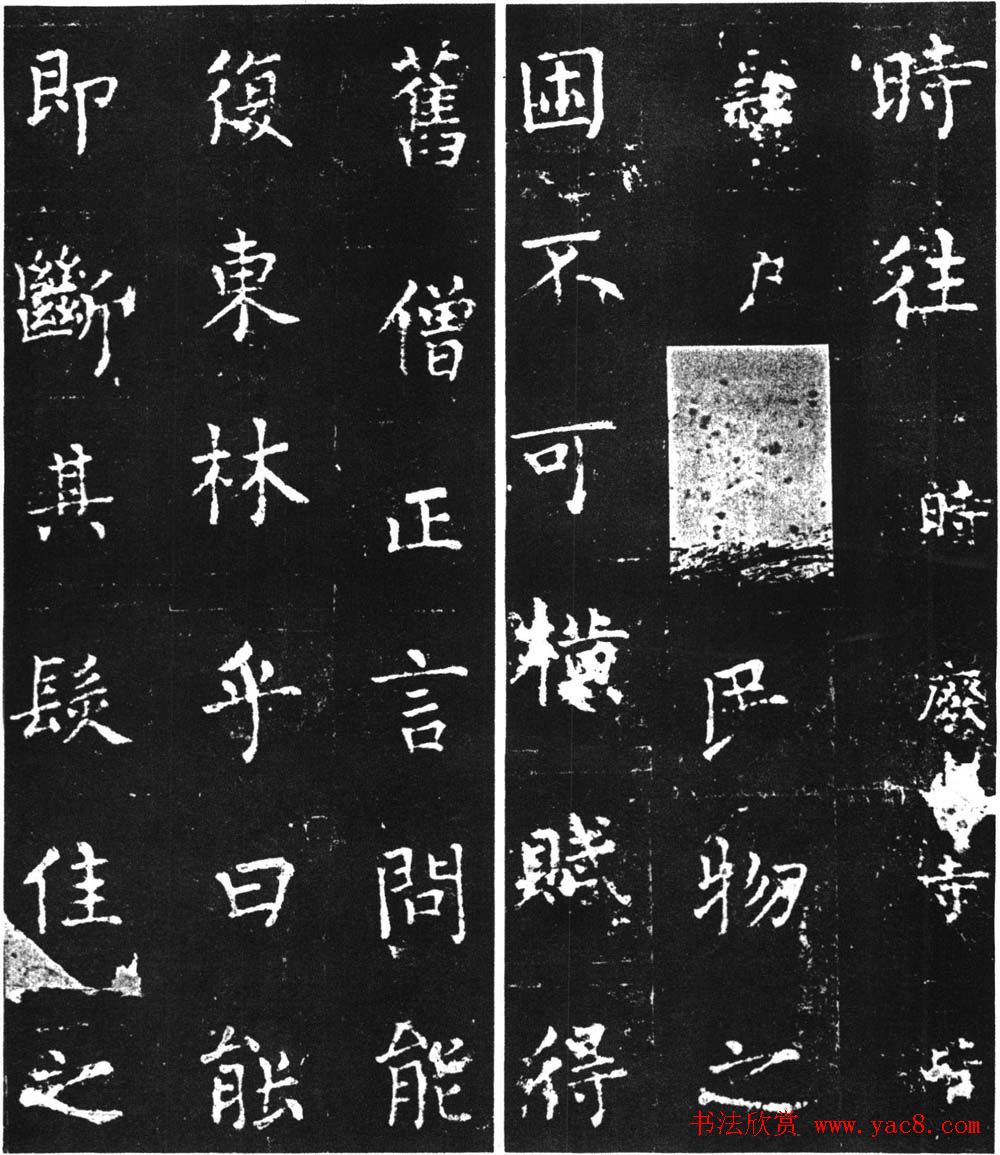 時往時廢寺
戶物之
困不可賦得
舊僧正言問能
復東林乎曰能
即斷其髮住之
书法欣赏 www.yac8.com